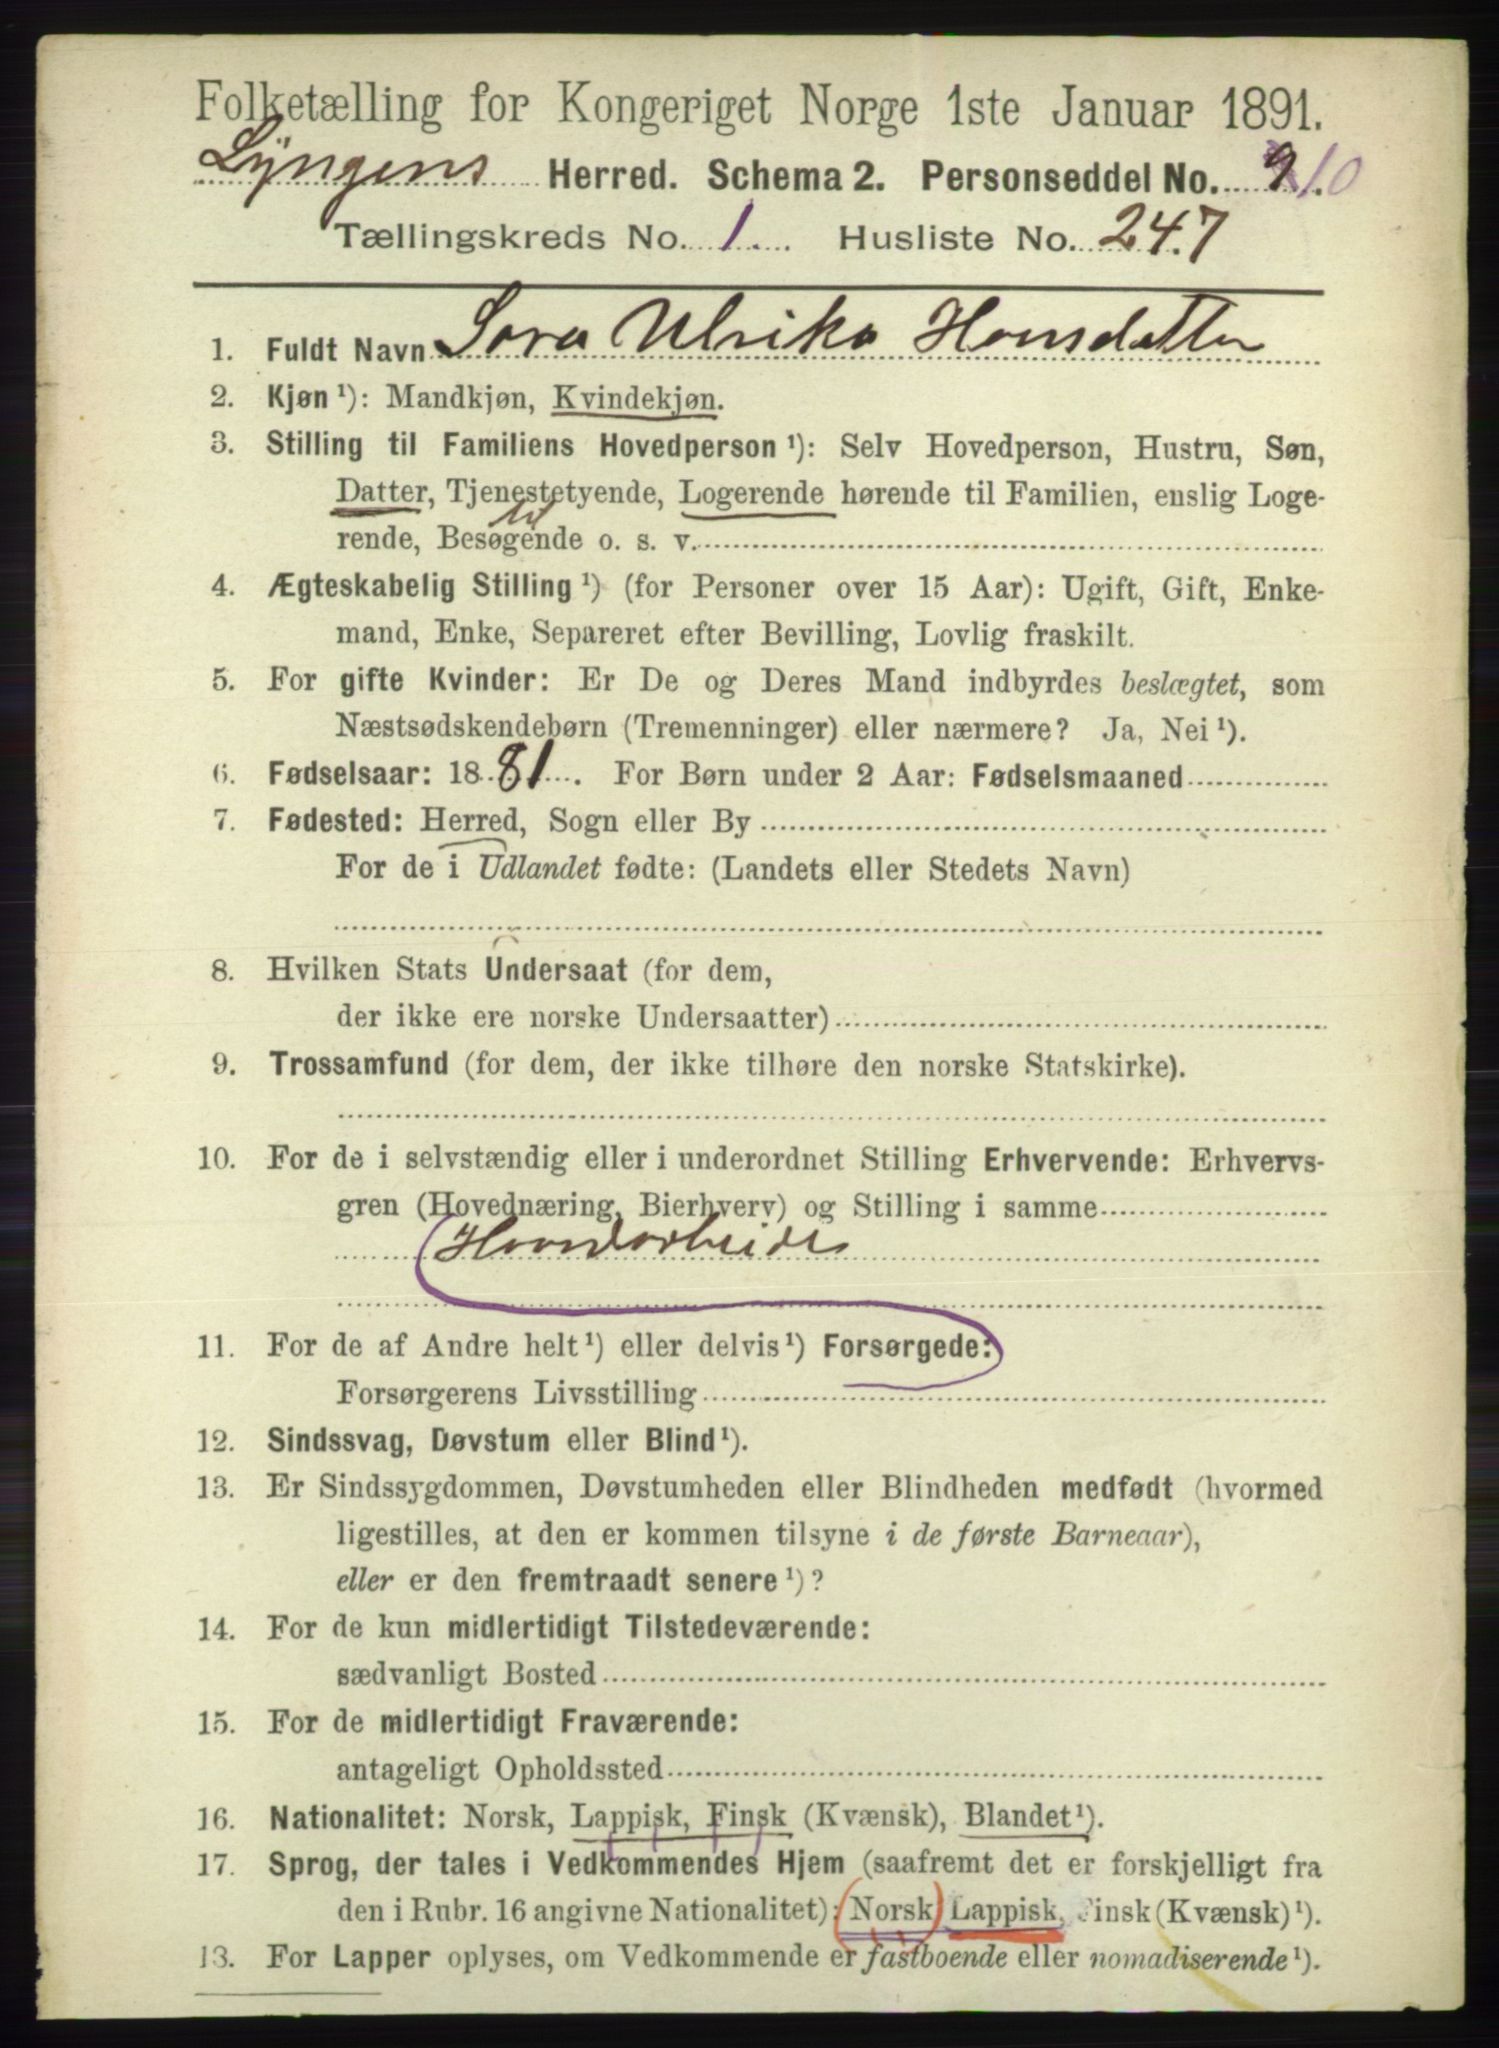 Folketælling for Kongeriget Norge 1ste Januar 1891.
Lyngens Herred. Schema 2. Personseddel No. 9 10
Tællingskreds No. 1. Husliste No. 247
1. Fuldt Navn Sara Ulrika Hansdatter
2. Kjøn ¹): Mandkjøn, Kvindekjøn.
3. Stilling til Familiens Hovedperson ¹): Selv Hovedperson, Hustru, Søn,
Datter, Tjenestetyende, Logerende hørende til Familien, enslig Loge-
til
rende, Besøgende o. s. v.
4. Ægteskabelig Stilling ¹) (for Personer over 15 Aar): Ugift, Gift, Enke-
mand, Enke, Separeret efter Bevilling, Lovlig fraskilt.
5. For gifte Kvinder: Er De og Deres Mand indbyrdes beslægtet, som
Næstsødskendebørn (Tremenninger) eller nærmere? Ja, Nei ¹).
6. Fødselsaar: 1881. For Børn under 2 Aar: Fødselsmaaned
7. Fødested: Herred, Sogn eller By
For de i Udlandet fødte: (Landets eller Stedets Navn)
8. Hvilken Stats Undersaat (for dem,
der ikke ere norske Undersaatter)
9. Trossamfund (for dem, der ikke tilhøre den norske Statskirke).
10. For de i selvstændig eller i underordnet Stilling Erhvervende: Erhvervs-
gren (Hovednæring, Bierhverv) og Stilling i samme
Haandarbeide
11. For de af Andre helt ¹) eller delvis ¹) Forsørgede:
Forsørgerens Livsstilling
12. Sindssvag, Døvstum eller Blind ¹).
13. Er Sindssygdommen, Døvstumheden eller Blindheden medfødt (hvormed
ligestilles, at den er kommen tilsyne i de første Barneaar),
eller er den fremtraadt senere ¹)?
14. For de kun midlertidigt Tilstedeværende:
sædvanligt Bosted
15. For de midlertidigt Fraværende:
antageligt Opholdssted
16. Nationalitet: Norsk, Lappisk, Finsk (Kvænsk), Blandet ¹).
17. Sprog, der tales i Vedkommendes Hjem (saafremt det er forskjelligt fra
den i Rubr. 16 angivne Nationalitet): Norsk, Lappisk, Finsk (Kvænsk) ¹).
13. For Lapper oplyses, om Vedkommende er fastboende eller nomadiserende ¹).